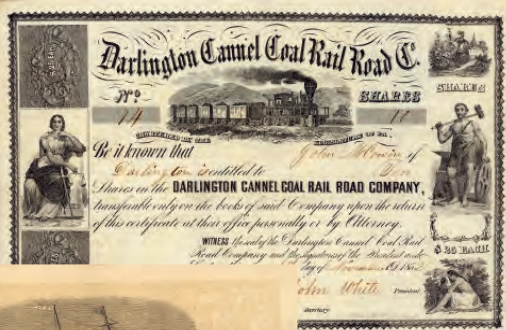 Darlington Cannel Coal Rail Road Co.
No. SHARES
14 10
SHARES
CHARTERED BY THE LEGISLATURE OF PA.
Be it known that John of
Darlington is entitled to Ten
Shares in the DARLINGTON CANNEL COAL RAIL ROAD COMPANY,
transferable only on the books of said Company upon the return
of this certificate at their office personally or by Attorney.
WITNESS the seal of the Darlington Cannel Coal Rail
Road Company and the signatures of the President and
day of
$25 EACH
John White President